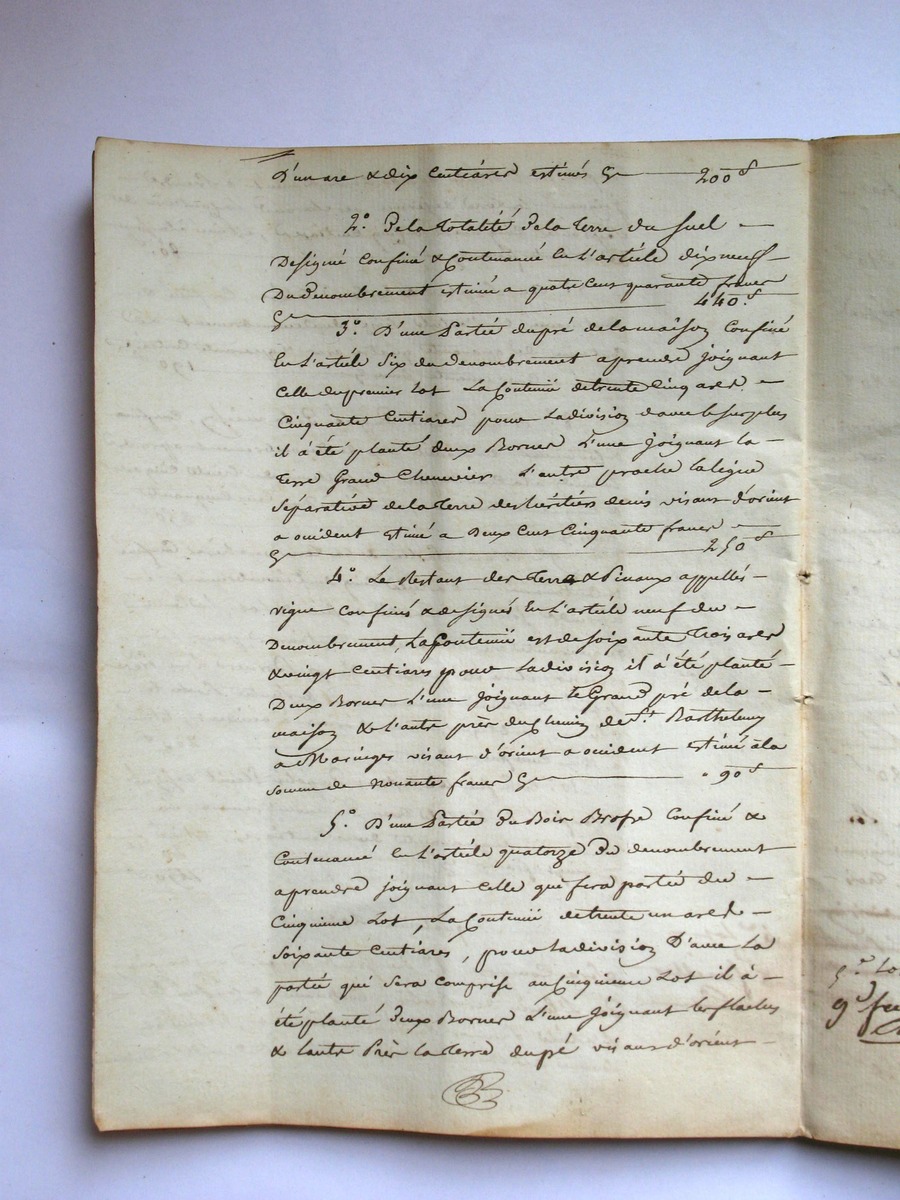 D'un are & dix Centiares estimés Cy — 200 f
2.° De la totalité De la terre du Suel —
Designé confiné & Contenancé En L'article dix neuf —
Du Denombrement estimé a quatre Cent quarante francs
Cy — 440. f
3.° D'une Partie du pré de la maison Confiné
En L'article Six du denombrement a prendre joignant
Celle du premier Lot La Contenüe de trente Cinq ares —
Cinquante Centiares pour La division d'avec le surplus
il á été planté deux Bornes L'une joignant la —
terre Grand Chenevier L'autre proche la ligne
Séparative de la terre des héritiers denis visans d'orient
a occident Estimé a Deux Cent Cinquante francs —
Cy — 250 f
4.° Le Restant des Terres & Pinaux appellés —
vigne confinés & designés En L'article neuf du —
Denombrement, La Contenüe est de soixante trois ares
& vingt Centiares pour La division il á été planté —
Deux Bornes L'une joignant le Grand pré de la —
maison & L'autre près du Chemin de St. Barthelemy
a Maringes visant d'orient a occident estimé à la
somme de Nonante francs Cy — 90 f
5.° D'une Partie du Bois Brosse Confiné &
Contenancé En L'article quatorze Du denombrement
a prendre joignant Celle qui fera partie du —
Cinquieme Lot, La Contenüe de trente un ares —
Soixante Centiares, pour La division D'avec La
partie qui Sera Comprise au Cinquieme Lot il á —
été planté Deux Bornes L'une joignant les flaches
& lautre Près La terre du pé visans d'orient —
5.e Lo
9d fe